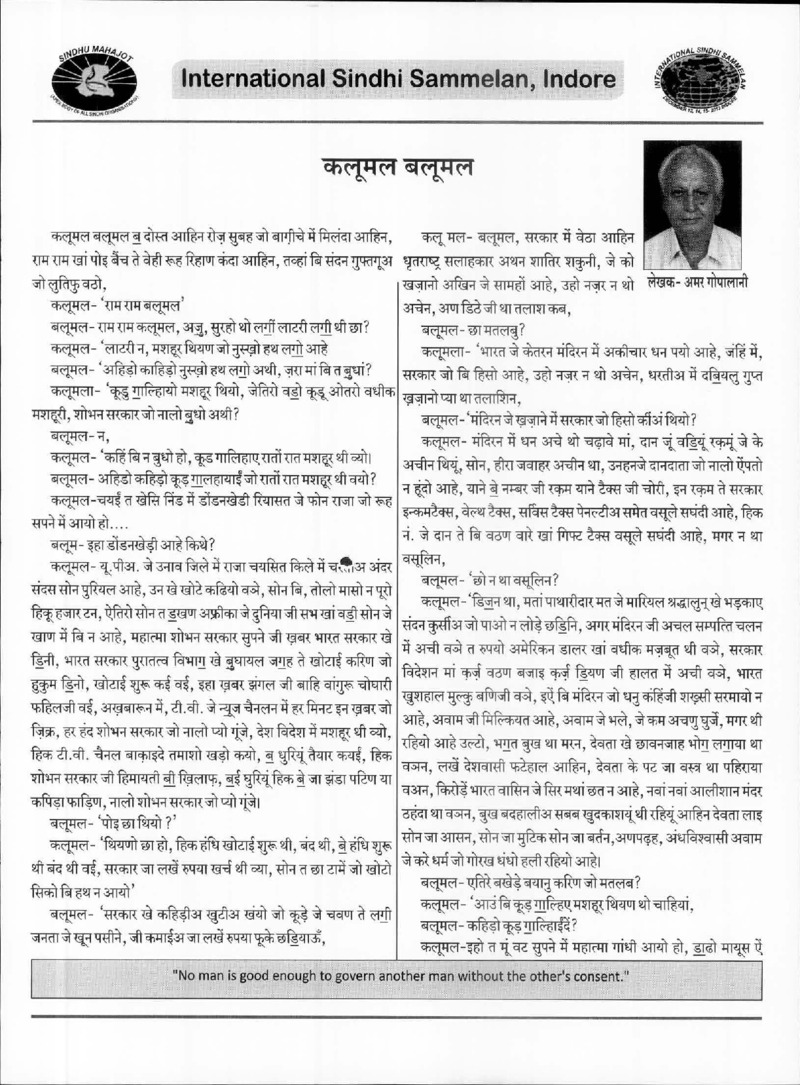 SINDHU MAHAJOT
International Sindhi Sammelan, Indore
INTERNATIONAL SINDHI SAMMELAN
कलूमल बलूमल
कलूमल बलूमल ॿ दोस्त आहिन रोज़ सुबह जो बाग़ीचे में मिलंदा आहिन,
राम राम खां पोइ बैंच ते वेही रूह रिहाण कंदा आहिन, तव्हां बि संदन गुफ्तगूअ
जो लुतिफु वठो,
कलूमल- 'राम राम बलूमल'
बलूमल- राम राम कलूमल, अॼु, सुरहो थो लगीं लाटरी लगी॒ थी छा?
कलूमल- 'लाटरी न, मशहूर थियण जो नुस्ख़ो हथ लगो॒ आहे
बलूमल- 'अहिड़ो काहिड़ो नुस्ख़ो हथ लगो॒ अथी, ज़रा मां बि त ॿुधां?
कलूमला- 'कूड़ु गा॒ल्हियो मशहूर थियो, जेतिरो वडो॒ कूड़ू ओतरो वधीक
मशहूरी, शोभन सरकार जो नालो ॿुधो अथी?
बलूमल- न,
कलूमल- 'कहिं बि न बुधो हो, कूड गालिहाए रातों रात मशहूर थी व्यो।
बलूमल- अहिडो कहिड़ो कूड़ गा॒लहायाईं जो रातों रात मशहूर थी वयो?
कलूमल-चयईं त खेसि निंड में डोंडनखेडी रियासत जे फोन राजा जो रूह
सपने में आयो हो....
बलूम- इहा डोंडनखेड़ी आहे किथे?
कलूमल- यू.पीअ. जे उनाव जिले में राजा चयसित किले में अंदर
संदस सोन पुरियल आहे, उन खे खोटे कढियो वञे, सोन बि, तोलो मासो न पूरो
हिकू हजार टन, ऐतिरो सोन त ड॒खण अफ्रीका जे दुनिया जी सभ खां वडी॒ सोन जे
खाण में बि न आहे, महात्मा शोभन सरकार सुपने जी ख़बर भारत सरकार खे
डि॒नी, भारत सरकार पुरातत्व विभाग॒ खे ॿुधायल जग॒ह ते खोटाई करिण जो
हुकुम डि॒नो, खोटाई शुरू कई वई, इहा ख़बर झंगल जी बाहि वांगुरू चोधारी
फहिलजी वई, अख़बारून में, टी.वी. जे न्यूज चैनलन में हर मिनट इन ख़बर जो
ज़िक्र, हर हंद शोभन सरकार जो नालो प्यो गूंजे, देश विदेश में मशहूर थी व्यो,
हिक टी.वी. चैनल बाक़ाइदे तमाशो खड़ो कयो, ॿ धुरियूं तैयार कयई, हिक
शोभन सरकार जी हिमायती ॿी ख़िलाफ़, ॿई धुरियूं हिक ॿे जा झंडा पटिण या
कपिड़ा फाड़िण, नालो शोभन सरकार जो प्यो गूंजे।
बलूमल- 'पोइ छा थियो ?'
कलूमल- 'थियणो छा हो, हिक हंधि खोटाई शुरू थी, बंद थी, ॿे हंधि शुरू
थी बंद थी वई, सरकार जा लखें रुपया खर्च थी व्या, सोन त छा टामें जो खोटो
सिको बि हथ न आयो'
बलूमल- 'सरकार खे कहिड़ीअ खुटीअ खंयो जो कूड़े जे चवण ते लगी॒
जनता जे खून पसीने, जी कमाईअ जा लखें रुपया फूके छडि॒याऊँ,
कलू मल- बलूमल, सरकार में वेठा आहिन
धृतराष्ट्र सलाहकार अथन शातिर शकुनी, जे को
खज़ानो अखिन जे सामहों आहे, उहो नज़र न थो
अचेन, अण डिठे जी था तलाश कब,
लेखक- अमर गोपालानी
बलूमल- छा मतलबु?
कलूमला- 'भारत जे केतरन मंदिरन में अकीचार धन पयो आहे, जंहिं में,
सरकार जो बि हिसो आहे, उहो नज़र न थो अचेन, धरतीअ में दबि॒यलु गुप्त
ख़ज़ानो प्या था तलाशिन,
बलूमल-'मंदिरन जे ख़ज़ाने में सरकार जो हिसो कीअं थियो?
कलूमल- मंदिरन में धन अचे थो चढ़ावे मां, दान जूं वडि॒यूं रक़मूं जे के
अचीन थियूं, सोन, हीरा जवाहर अचीन था, उनहनजे दानदाता जो नालो ऐंपतो
न हूंदो आहे, याने ॿे नम्बर जी रक़म याने टैक्स जी चोरी, इन रक़म ते सरकार
इन्कमटैक्स, वेल्थ टैक्स, सर्विस टैक्स पेनल्टीअ समेत वसूले सघंदी आहे, हिक
नं. जे दान ते बि वठण वारे खां गिफ्ट टैक्स वसूले सघंदी आहे, मगर न था
वसूलिन,
बलूमल- 'छो न था वसूलिन?
कलूमल- 'डिॼन था, मतां पाथारीदार मत जे मारियल श्रद्धालुन् खे भड़काए
संदन कुर्सीअ जो पाओ न लोड़े छडि॒नि, अगर मंदिरन जी अचल सम्पत्ति चलन
में अची वञे त रुपयो अमेरिकन डालर खां वधीक मज़बूत थी वञे, सरकार
विदेशन मां क़र्ज़ वठण बजाइ क़र्ज़ डि॒यण जी हालत में अची वञे, भारत
खुशहाल मुल्कु बणिजी वञे, इऐं बि मंदिरन जो धनु कंहिंजी शख़्सी सरमायो न
आहे, अवाम जी मिल्कियत आहे, अवाम जे भले, जे कम अचणु घुर्जे, मगर थी
रहियो आहे उल्टो, भग॒त बुख था मरन, देवता खे छावनजाह भोग॒ लगा॒या था
वञन, लखें देशवासी फटेहाल आहिन, देवता के पट जा वस्त्र था पहिराया
वञन, किरोड़ें भारत वासिन जे सिर मथां छत न आहे, नवां नवां आलीशान मंदर
ठहंदा था वञन, बुख बदहालीअ सबब खुदकाशयूं थी रहियूं आहिन देवता लाइ
सोन जा आसन, सोन जा मुटिक सोन जा बर्तन,अणपढ़ह, अंधविश्वासी अवाम
जे करे धर्म जो गोरख धंधो हली रहियो आहे।
बलूमल- एतिरे बखेड़े बयानु करिण जो मतलब?
कलूमल- 'आउं बि कूड़ गा॒ल्हिए मशहूर थियण थो चाहियां,
बलूमल- कहिड़ो कूड़ गा॒ल्हाईंदें?
कलूमल-इहो त मूं वट सुपने में महात्मा गांधी आयो हो, डा॒ढो मायूस ऐं
"No man is good enough to govern another man without the other's consent."